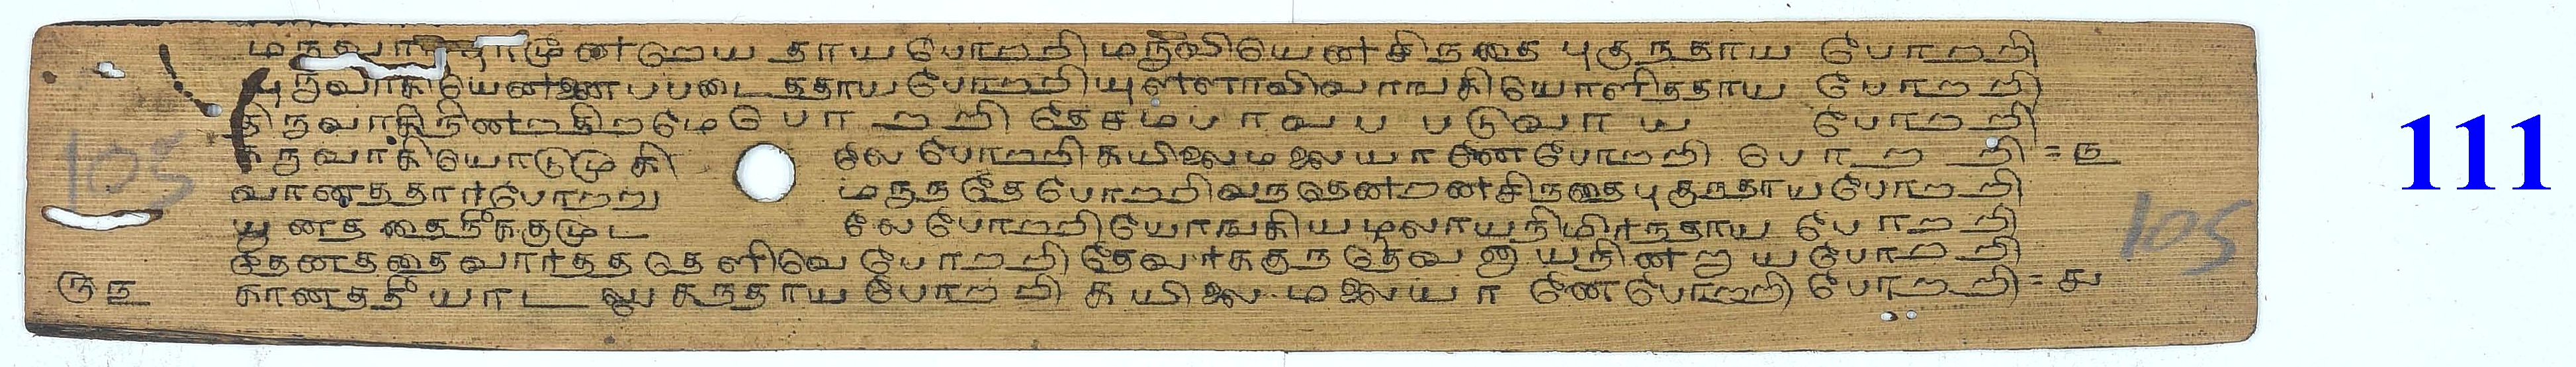 மருவார் புரமூன்றெய தாய போறறி மருவியெனசிநதை புகுநதாய போறறி
யுருவாகியெனனைப படைததாய போறறி யுளளாவிவாஙகியொளிததாய போறறி
திருவாகிநினறதிறமெ பொறறி தெசமபரவப படுவாய போறறி
கருவாகியொடுமுகிலெ போறறி கயிலைமலையானெபோறறி பொறறி = ௩
வானததார்போறறு மருநதெ போறறிவநதெனறனசிநதைபுகுநதாயபோறறி
யூனததைநீககுமுட லெ போறறியொஙகியழலாயநிமிர்நதாய போறறி
தெனததைவார்தததெளிவெ போறறி தெவர்ககுநதெவனாயநினறாய போறறி
௫௩ கானததீயாடலுகநதாய போறறி கயிலைமலையானெபோறறி போறறி = ௪
105
105
111